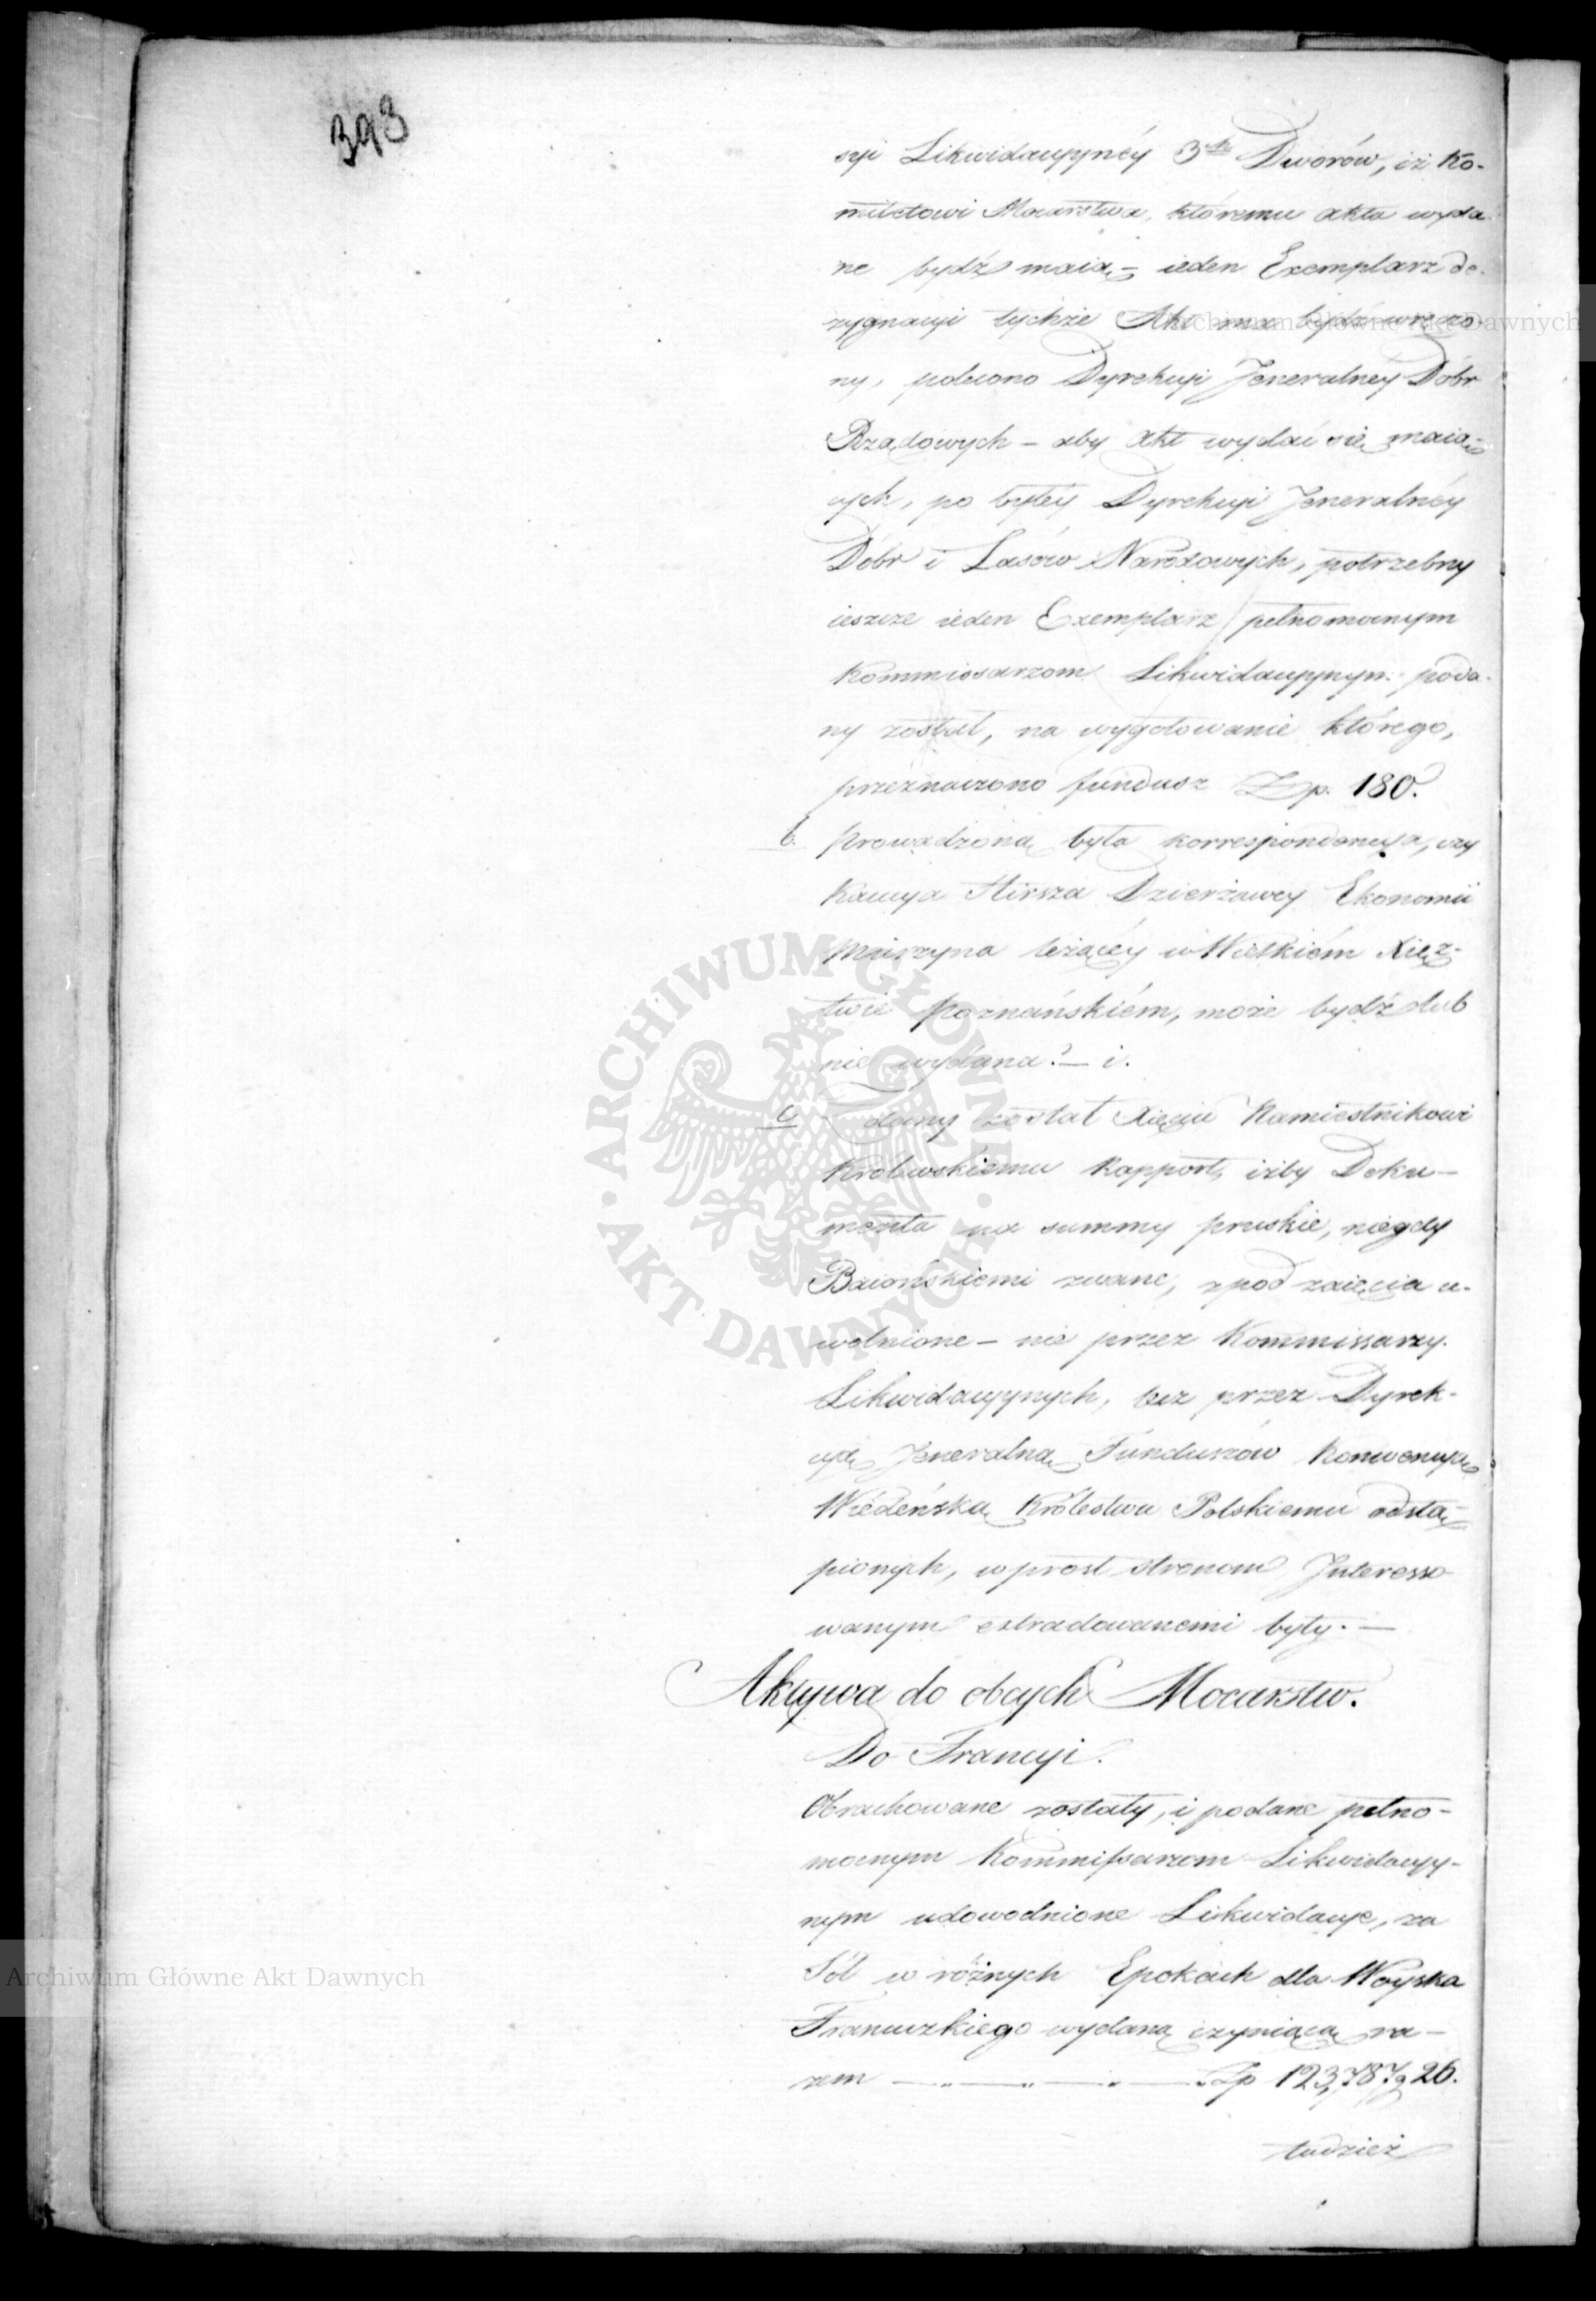 393
syi Likwidacyynéy 3ch Dworów, iż Ko-
mitetowi Mocarstwa, któremu akta wyda-
ne bydź maią – ieden Exemplarz de-
zygnacyi tychże Akt ma bydź wręczo-
ny, polecono Dyrekcyi Jeneralney Dóbr
Rządowych – aby Akt wydać się maią-
cych, po byłéy Dyrekcyi Jeneralnéy
Dóbr i Lasów Narodowych, potrzebny
ieszcze ieden Exemplarz pełnomocnym
Kommissarzom Likwidacyynym poda-
ny został, na wygotowanie którego,
przeznaczono fundusz Zp. 180.
b. Prowadzoną była korrespondencya, czy
Kaucya Hirsza Dzierżawcy Ekonomii
Murzyna leżącéy w Wielkiém Xięz-
twie Poznańskiém, może bydź lub
nie wydana? – i.
c dany został Xięciu Namiestnikowi
Krolewskiemu Rapport, iżby Doku-
menta na summy pruskie, niegdy
Baiońskiemi zwane, z pod zaięcia u-
wolnione – nie przez Kommissarzy
Likwidacyynych, lecz przez Dyrek-
cyą Jeneralną Funduszów Konwencyą
Wiédeńską Królestwu Polskiemu odstą-
pionych, wprost stronom Interesso
wanym extradowanemi były. –
Aktywa do obcych Mocarstw.
Do Francyi.
Obrachowane zostały, i podane pełno-
mocnym Kommissarzom Likwidacyy-
nym udowodnione Likwidacye, za
Sól w różnych Epokach dla Woyska
Francuzkiego wydaną czyniącą ra-
zem — „ — „ — „ — Zp 123,787 g 26.
tudzież
ARCHIWUM GŁÓWNE · AKT DAWNYCH ·
Archiwum Główne Akt Dawnych
Archiwum Główne Akt Dawnych